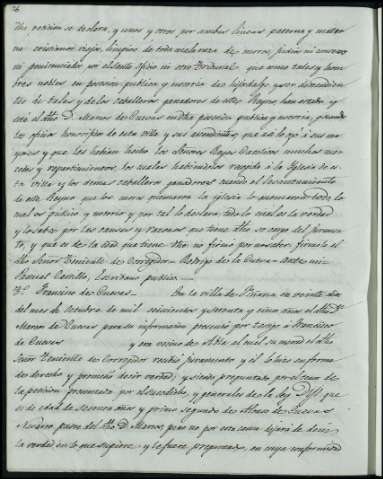 26
dha peticion se declara, y unos y otros por ambas lineas paterna y mater
na cristianos viejos, limpios de toda mala raza de moros, judios ni conversos
ni penitenciados por el Santo Oficio ni otro Tribunal que como tales y hom
bres nobles en posesion publica y notoria de hijosdalgo y por descendien
tes de tales y de los caballeros ganadores de ellos Reyes, han estado y
está el dho D. Marcos de Cuevas en dha posesion publica y notoria, 
los oficios honorificos de esta villa y sus ascendientes, que así lo oyó á sus ma
yores y que les habian hecho los Señores Reyes Catolicos muchas mer
cedes y repartimientos, los cuales habiendose recogido á la Iglesia de es
ta villa y los demas caballeros ganadores cuando el levantamiento
de este Reyno que los moros quemaron la iglesia lo quemaron todo lo
cual es publico y notorio y por tal lo declara, todo lo cual es la verdad
y lo sabe por las causas y razones que tiene dho so cargo del juramen
to, y que es de la edad que tiene dho no firmó por no saber, firmolo el
dho Señor Teniente de Corregidor = Rodrigo de la Cueva = Ante mi =
Pascual Carrillo, Escribano publico
3º. Francisco de Cuevas = En la villa de Oriana en veinte dias
del mes de Octubre de mil seiscientos y setenta y cinco años el dho D.
Marcos de Cuevas para su informacion presentó por testigo á Francisco
de Cuevas y era vecino de Abla el cual su merced el dho
Señor Teniente de Corregidor recibió juramento y él lo hizo en forma
de derecho y prometió decir verdad; y siendo preguntado por el tenor de
la peticion presentada por el susodicho, y generales de la ley Dijo: que
es de edad de sesenta años y primo segundo de Alonso de Cuevas
Navarro, padre del dho D. Marcos, pero no por esto causa dejará de decir
la verdad en lo que supiere y le fuere preguntado, en cuya conformidad